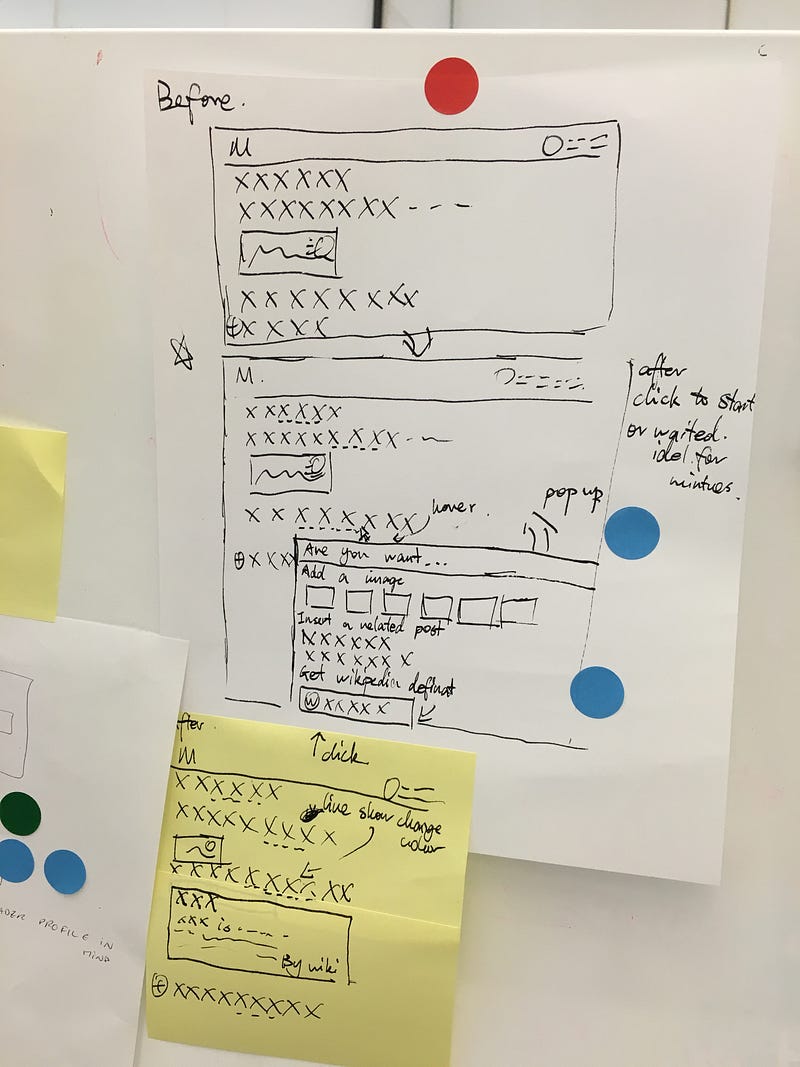 Before.
M
XXXXXX
XXXXXXXX - - -
XXXXXXXX
XXXX
M.
XXXXXX
XXXXXXXXXX
XXXXXXXX
XXX
after
click to start
or waited.
idel for
mintues.
hover.
pop up
Are you want...
Add a image
Insert a related post
XXXXXX
XXXXXX X
Get wikipedia definat
W XXXXX
click
fter.
M
XXXXXX
XXXXXXXXX
live show change
color
XXXXXXXXXX
XXX
XXX is - - - -
By wiki
XXXXXXXXXX
ADER PROFILE IN
MIND